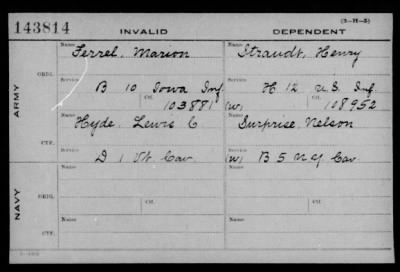 143814 INVALID DEPENDENT (3-H-5)
Name Ferrel, Marion Name Straudt, Henry
ARMY
ORIG. Service B 10 Iowa Inf Service H 12 U.S. Inf.
Ctf. 103881 (W) Ctf. 108952
Name Hyde, Lewis C Name Surprise, Nelson
CTF. Service D 1 Vt. Cav Service (W) B 5 N Y Cav.
NAVY
ORIG. Name Name
Ctf. Ctf.
CTF. Name Name